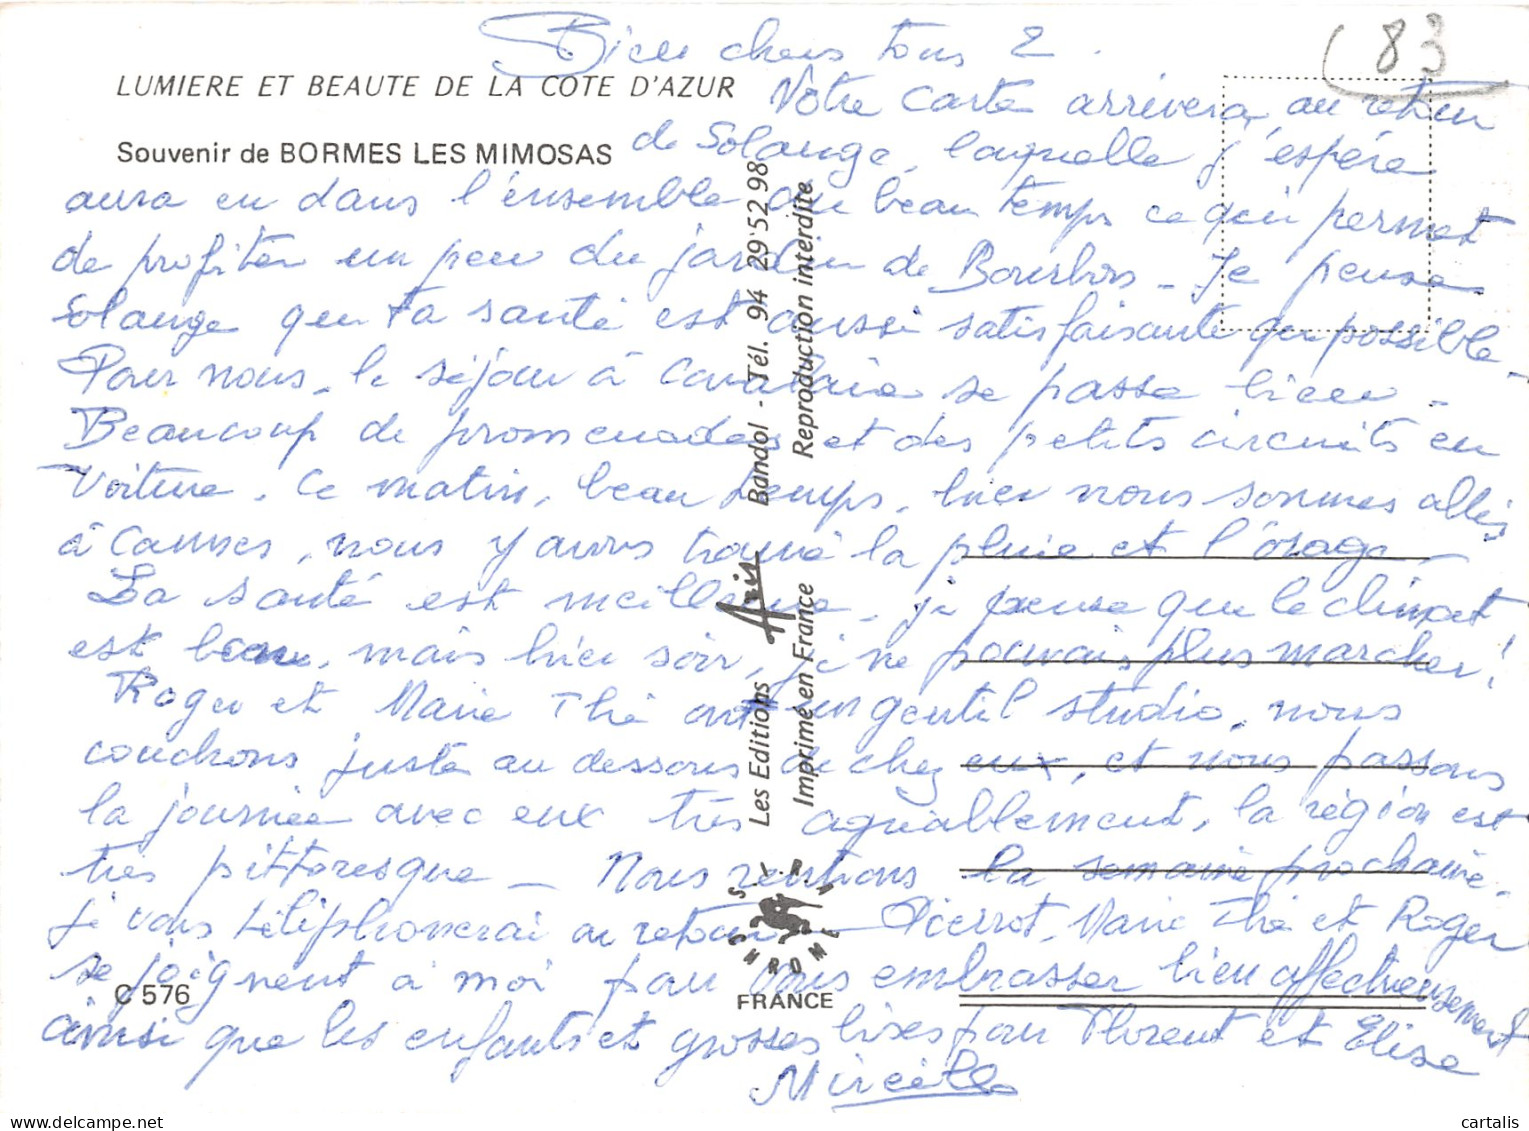 (83
Bien chers tous 2.
LUMIERE ET BEAUTE DE LA COTE D'AZUR
Votre carte arrivera, au retour
Souvenir de BORMES LES MIMOSAS
de Solange, laquelle j'espère
aura eu dans l'ensemble du beau temps ce qui permet
de profiter un peu du jardin de Bourbon - Je pense
Solange que ta santé est aussi satisfaisante que possible -
Pour nous, le séjour à Cavalaire se passe bien -
Beaucoup de promenades et des petits circuits en
voiture. Ce matin, beau temps, hier nous sommes allés
à Cannes, nous y avons trouvé la pluie et l'orage -
La santé est meilleure - je pense que le climat
est beau, mais hier soir, je ne pouvais plus marcher !
Roger et Marie Thé ont un gentil studio, nous
couchons juste au dessous de chez eux, et nous passons
la journée avec eux très agréablement, la région est
très pittoresque - Nous rentrons la semaine prochaine.
je vous téléphonerai au retour - Pierrot, Marie Thé et Roger
se joignent à moi pour vous embrasser bien affectueusement
ainsi que les enfants et grosses bises pour Florent et Elise
Mireille
C 576
Les Editions Aris Bandol - Tél. 94 29 52 98
Imprimé en France Reproduction interdite
FRANCE
cartalis
delcampe.net